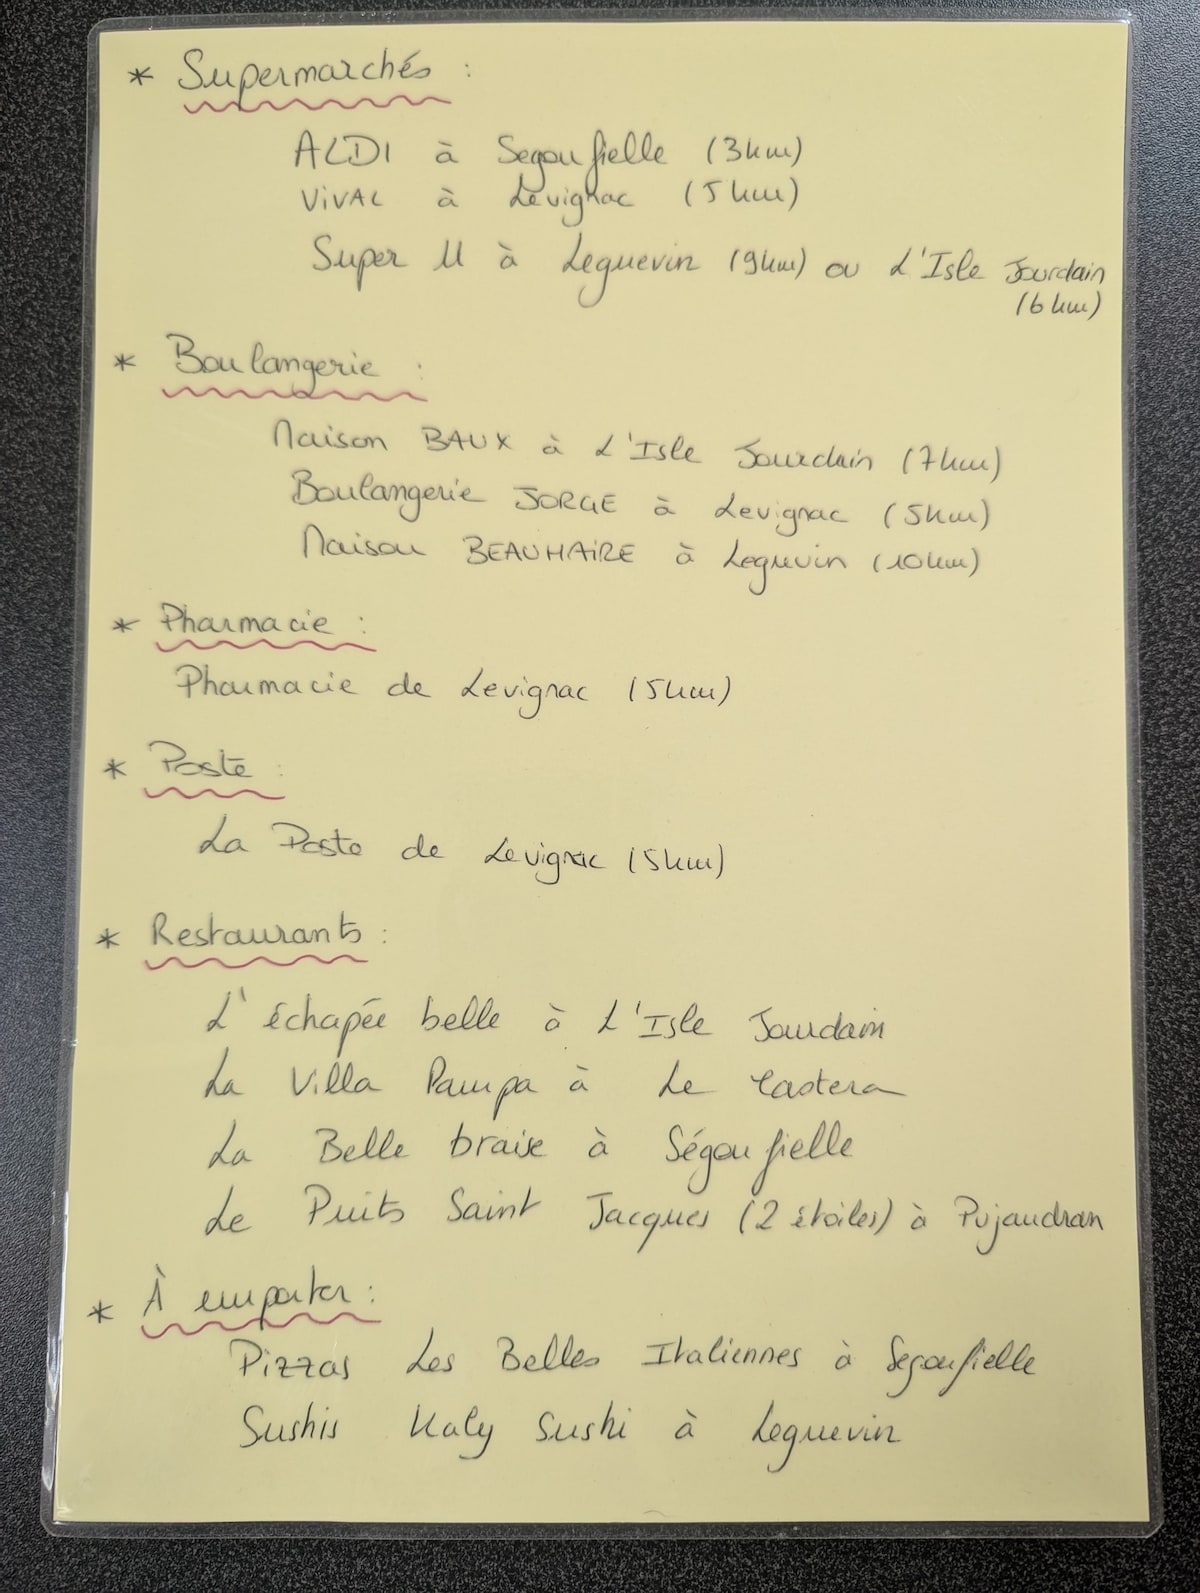 * Supermarchés :
ALDI à Segoufielle (3km)
ViVAL à Levignac (5km)
Super U à Leguevin (9km) ou L'Isle Jourdain
(6km)
* Boulangerie :
Maison BAUX à L'Isle Jourdain (7km)
Boulangerie JORGE à Levignac (5km)
Maison BEAUMAiRE à Leguvin (10km)
* Pharmacie :
Pharmacie de Levignac (5km)
* Poste :
La Poste de Levignac (5km)
* Restaurants :
L'échapée belle à L'Isle Jourdain
La Villa Pampa à Le Castera
La Belle braise à Ségoufielle
Le Puits Saint Jacques (2 étoiles) à Pujaudran
* À emporter :
Pizzas Les Belles Italiennes à Segoufielle
Sushis Kaly Sushi à Leguevin